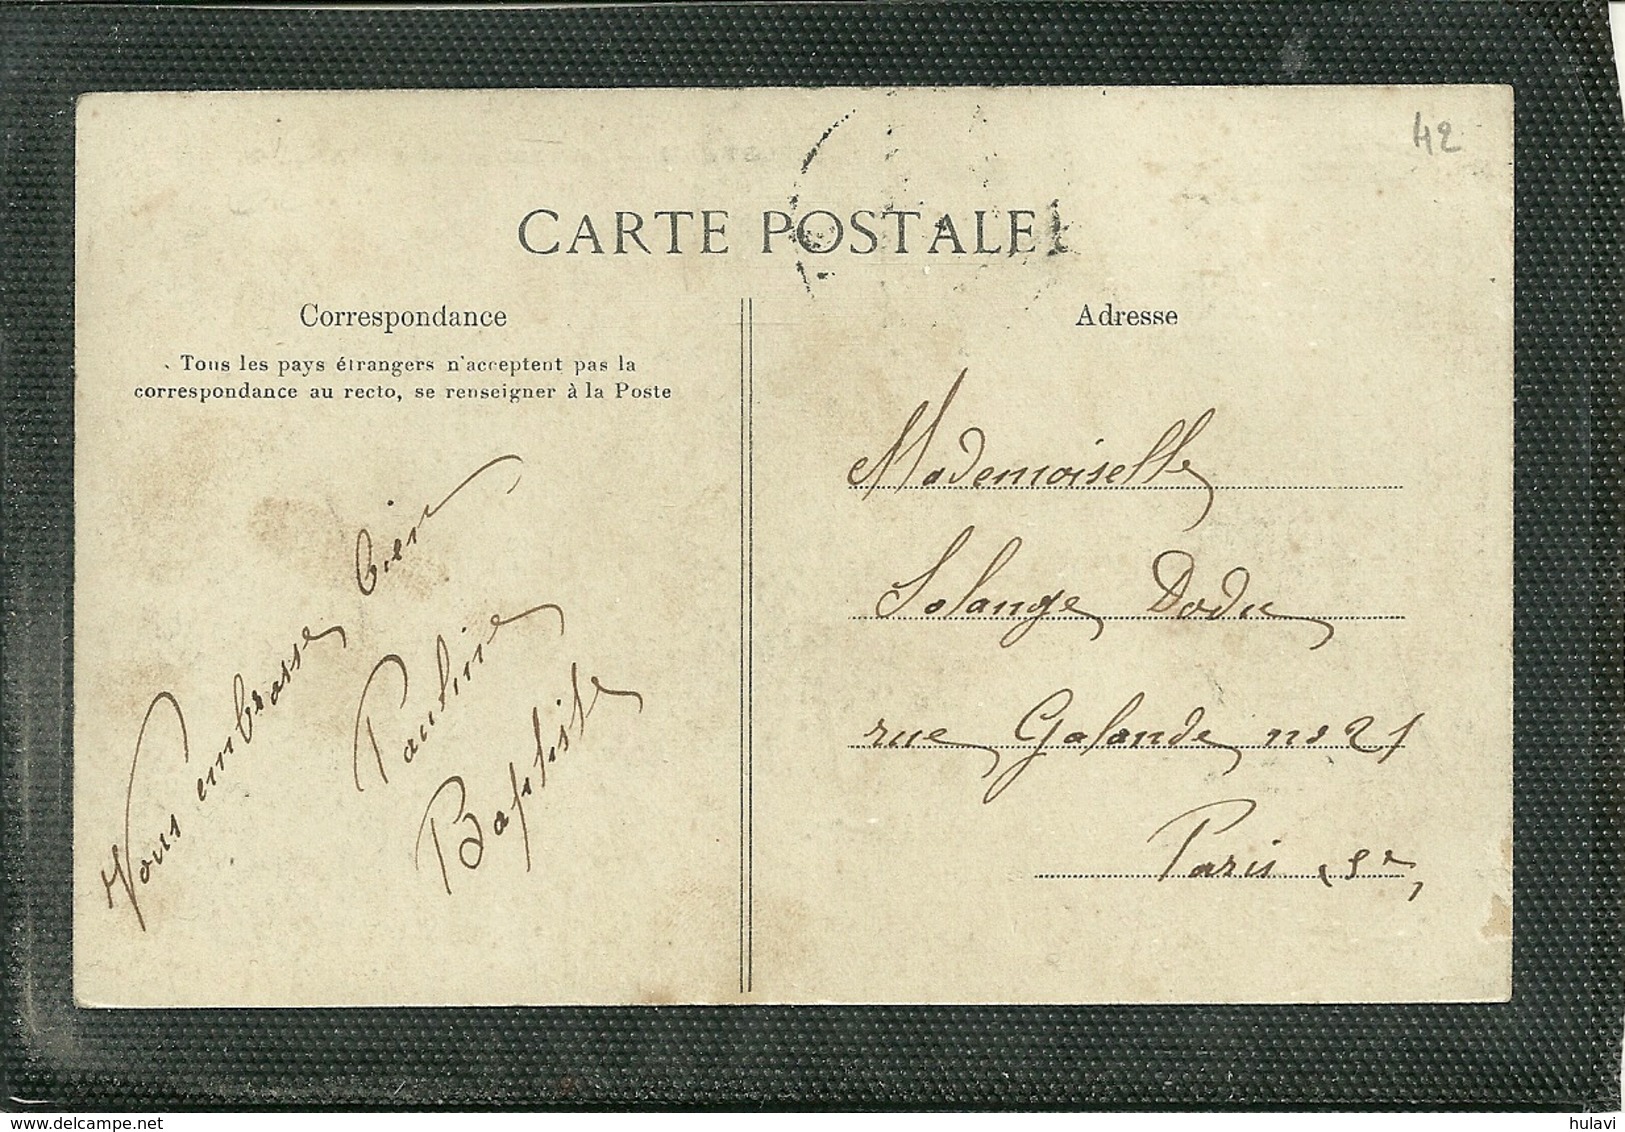 42
CARTE POSTALE
Correspondance
Tous les pays étrangers n'acceptent pas la
correspondance au recto, se renseigner à la Poste
Vous embrasse bien
Pauline
Baptiste
Adresse
Mademoiselle
Solange Dodu
rue Galande no 21
Paris 5e
delcampe.net
hulavi